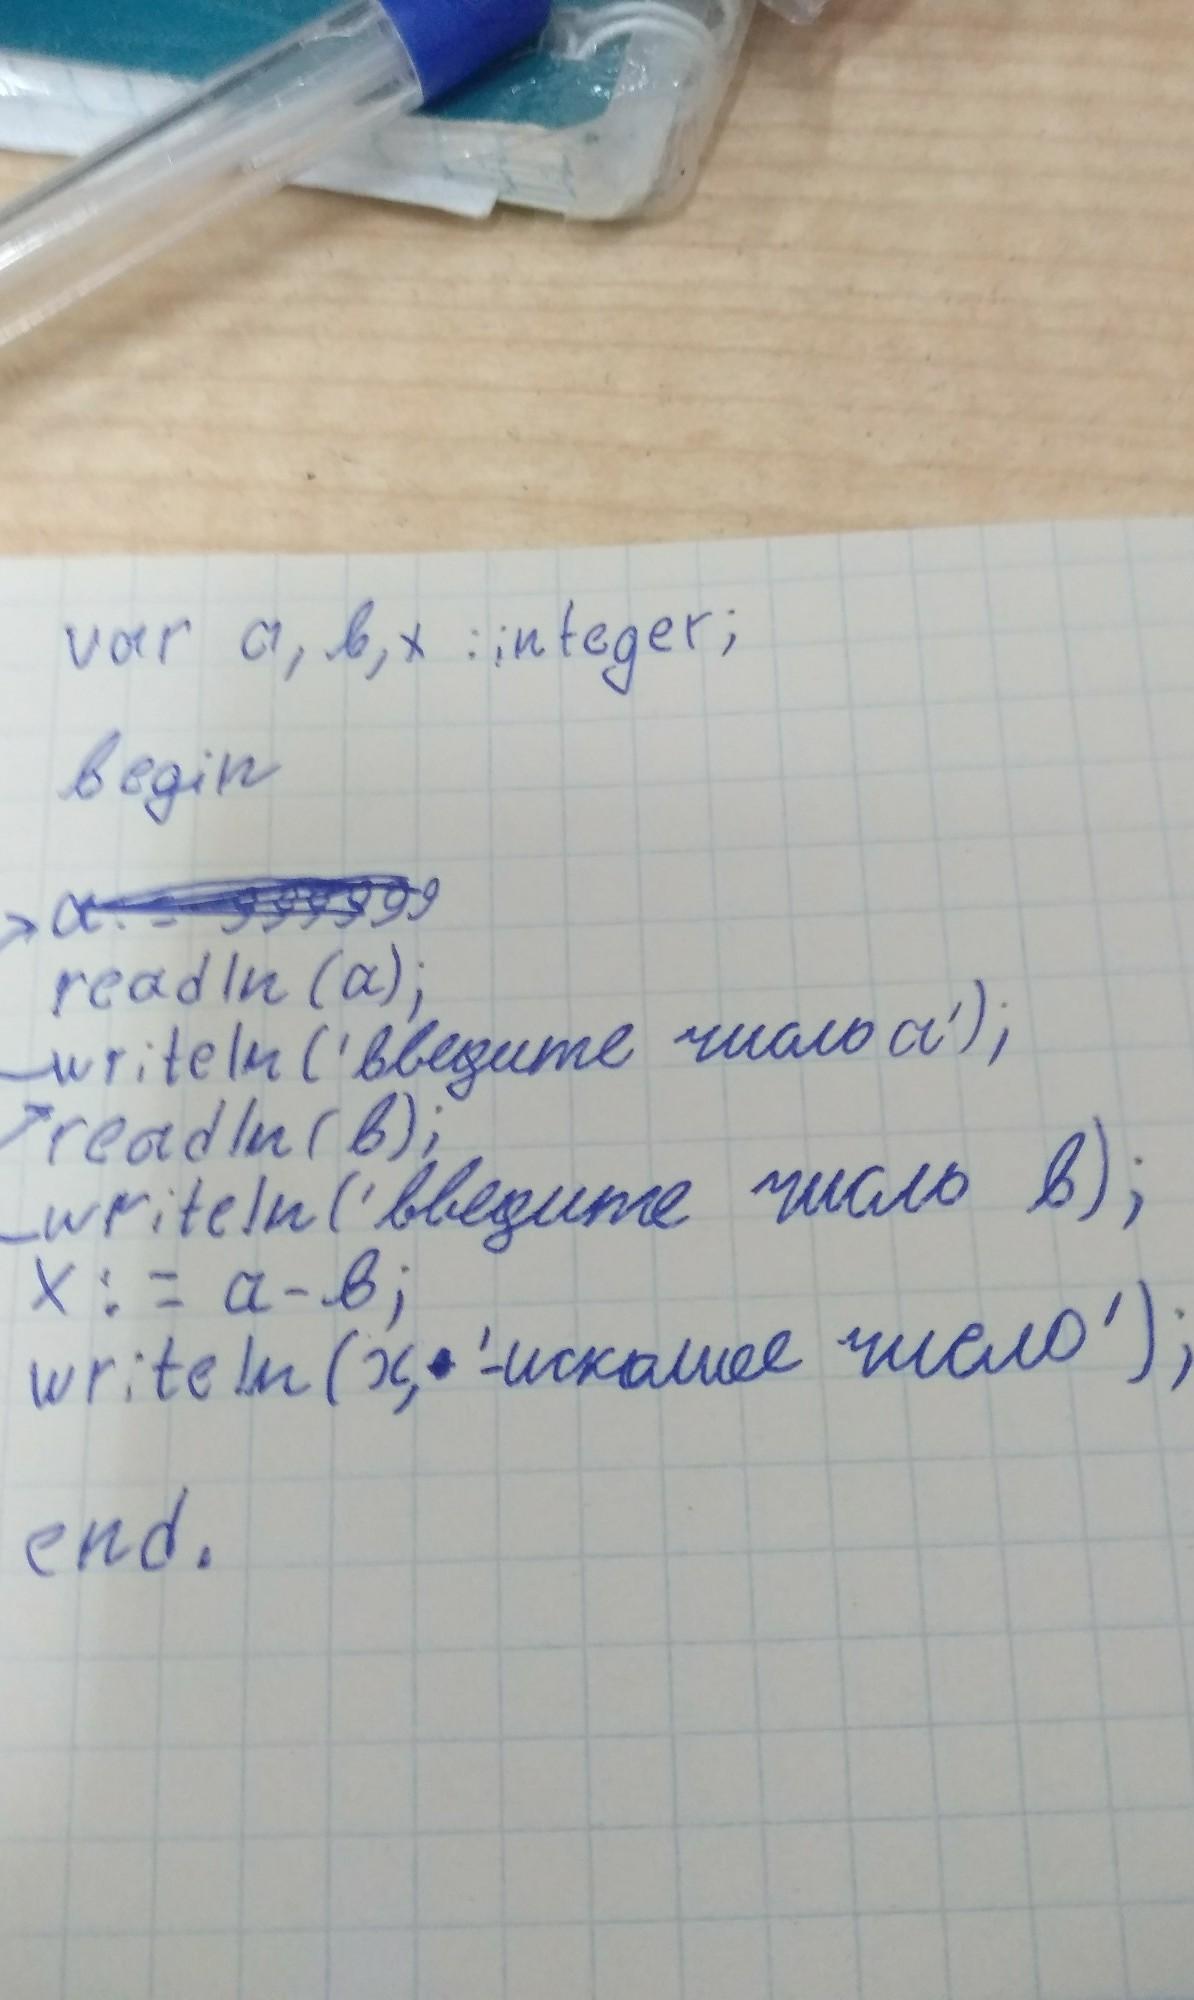 var a, b, x : integer;
begin
a := 999999
readln(a);
writeln('введите число a');
readln(b);
writeln('введите число b);
x := a - b;
writeln(x, '-искомое число');
end.